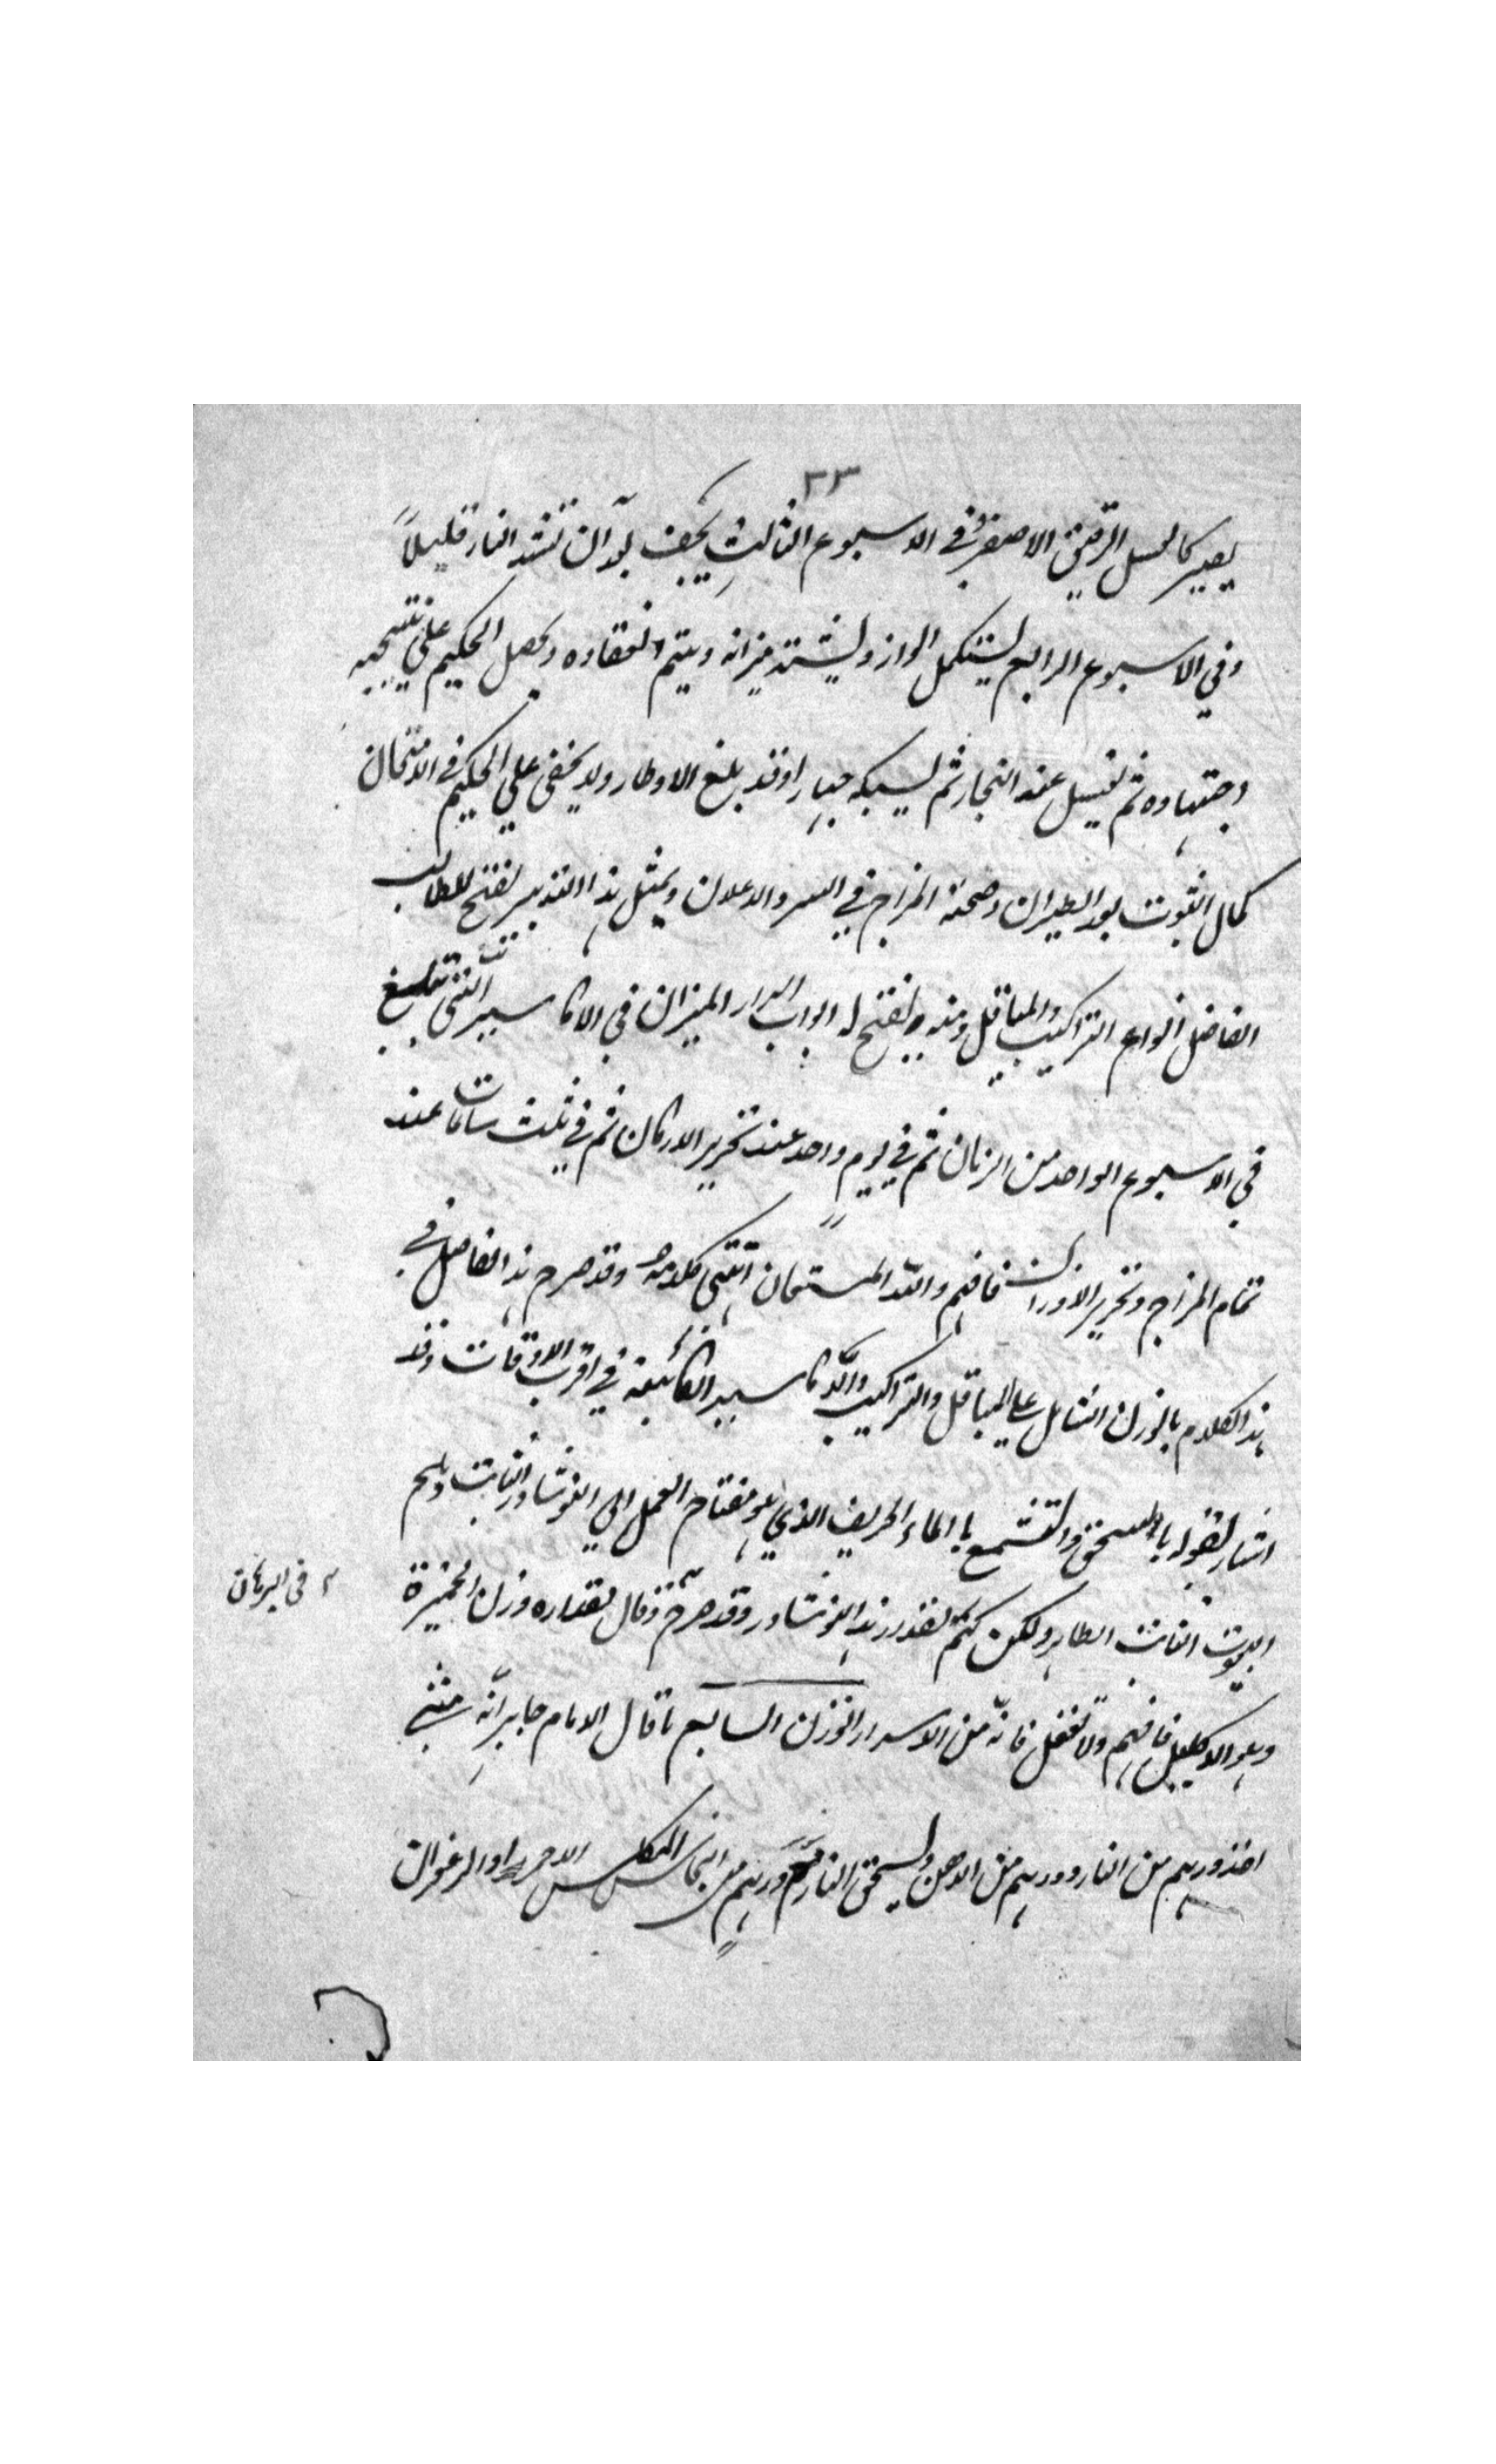 ٢٣
يصير كالعسل الرقيق الاصفر وفي الاسبوع الثالث يجف بعد ان تشد النار قليلاً
وفي الاسبوع الرابع يستكمل الوازه ويشتد ميزانه ويتم انعقاده ويحصل الحكيم على نتيجه
اجتهاده ثم تغسل عنه البخار ثم يسبكه جبارا وقد بلغ الاوطار ولا يخفى على الحكيم في الامتحان
كمال الثبوت بعد الطيران وصحة المزاج في السر والاعلان وبمثل هذا التدبير يفتح للطالب
الفاضل انواع التراكيب والمياقل ومنه ينفتح له ابواب اسرار الميزان في الاكاسير التي تبلغ
في الاسبوع الواحد من الزمان ثم في يوم واحد عند تحرير الاركان ثم في ثلث ساعات عند
تمام المزاج وتحرير الاوزان فافهم والله المستعان انتهى كلامه وقد صرح هذا الفاضل في
هذا الكلام بالوزن الشامل على المياقل والتراكيب والاكاسير الكائنة في اقرب الاوقات وقد
اشار بقوله بالسحق والتشميع بالماء الحريف الذي هو مفتاح العمل الى النوشادر الثابت وملح
البيوت الثابت الطاهر ولكن كتم لقدر هذا النوشادر وقد صرح وقال مقداره وزن الخميرة
٢ في البرهان
وهو الاكليل فافهم ولا تغفل فانه من الاسرار الوزن السابع ما قال الامام جابر انه مثنى
اخذ درهم من النار ودرهم من الدهن وسحق النار ثم درهم من النحاس المكلس الاحمر او الزعفران